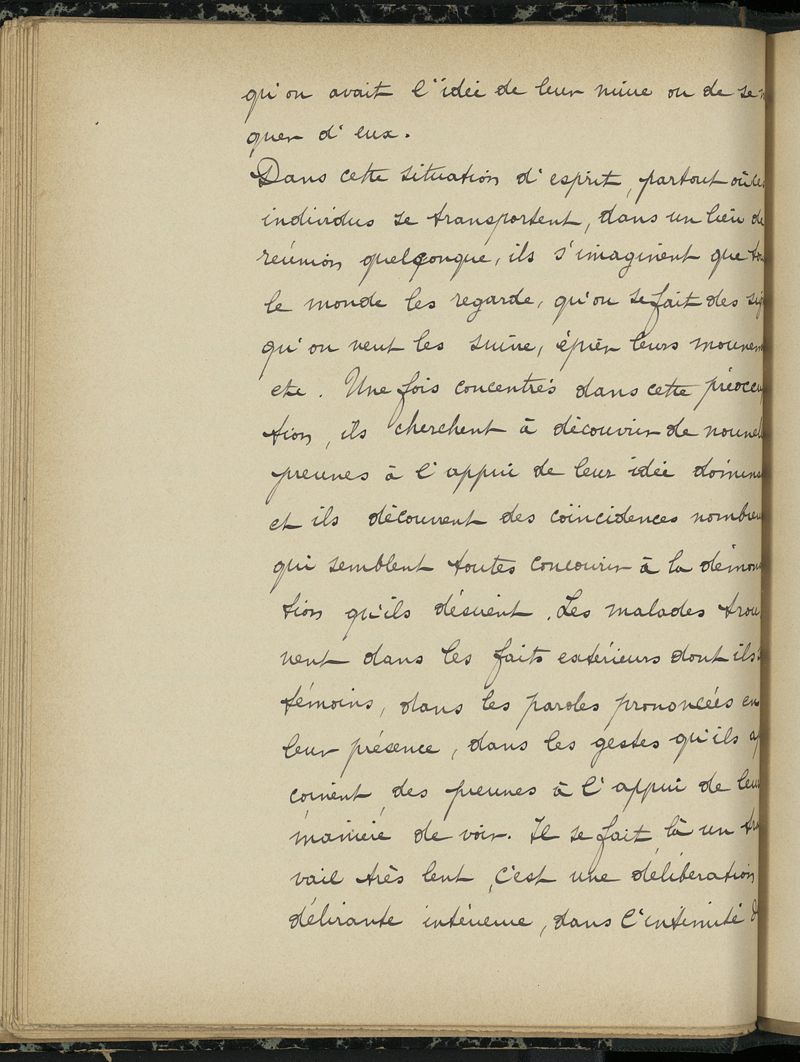 qu'on avait l'idée de leur nuire ou de se m
quer d'eux.
Dans cette situation d'esprit, partout où les
individus se transportent, dans un lieu de
réunion quelconque, ils s'imaginent que to
le monde les regarde, qu'on se fait des sig
qu'on veut les suivre, épier leurs mouvem
etc. Une fois concentrés dans cette préoccu
tion, ils cherchent à découvrir de nouvel
preuves à l'appui de leur idée domina
et ils découvrent des coïncidences nombreu
qui semblent toutes concourir à la démons
tion qu'ils désirent. Les malades trou
vent dans les faits extérieurs dont ils s
témoins, dans les paroles prononcées en
leur présence, dans les gestes qu'ils ap
çoivent des preuves à l'appui de leur
manière de voir. Il se fait là un tra
vail très lent, c'est une délibération
délirante intérieure, dans l'intimité d